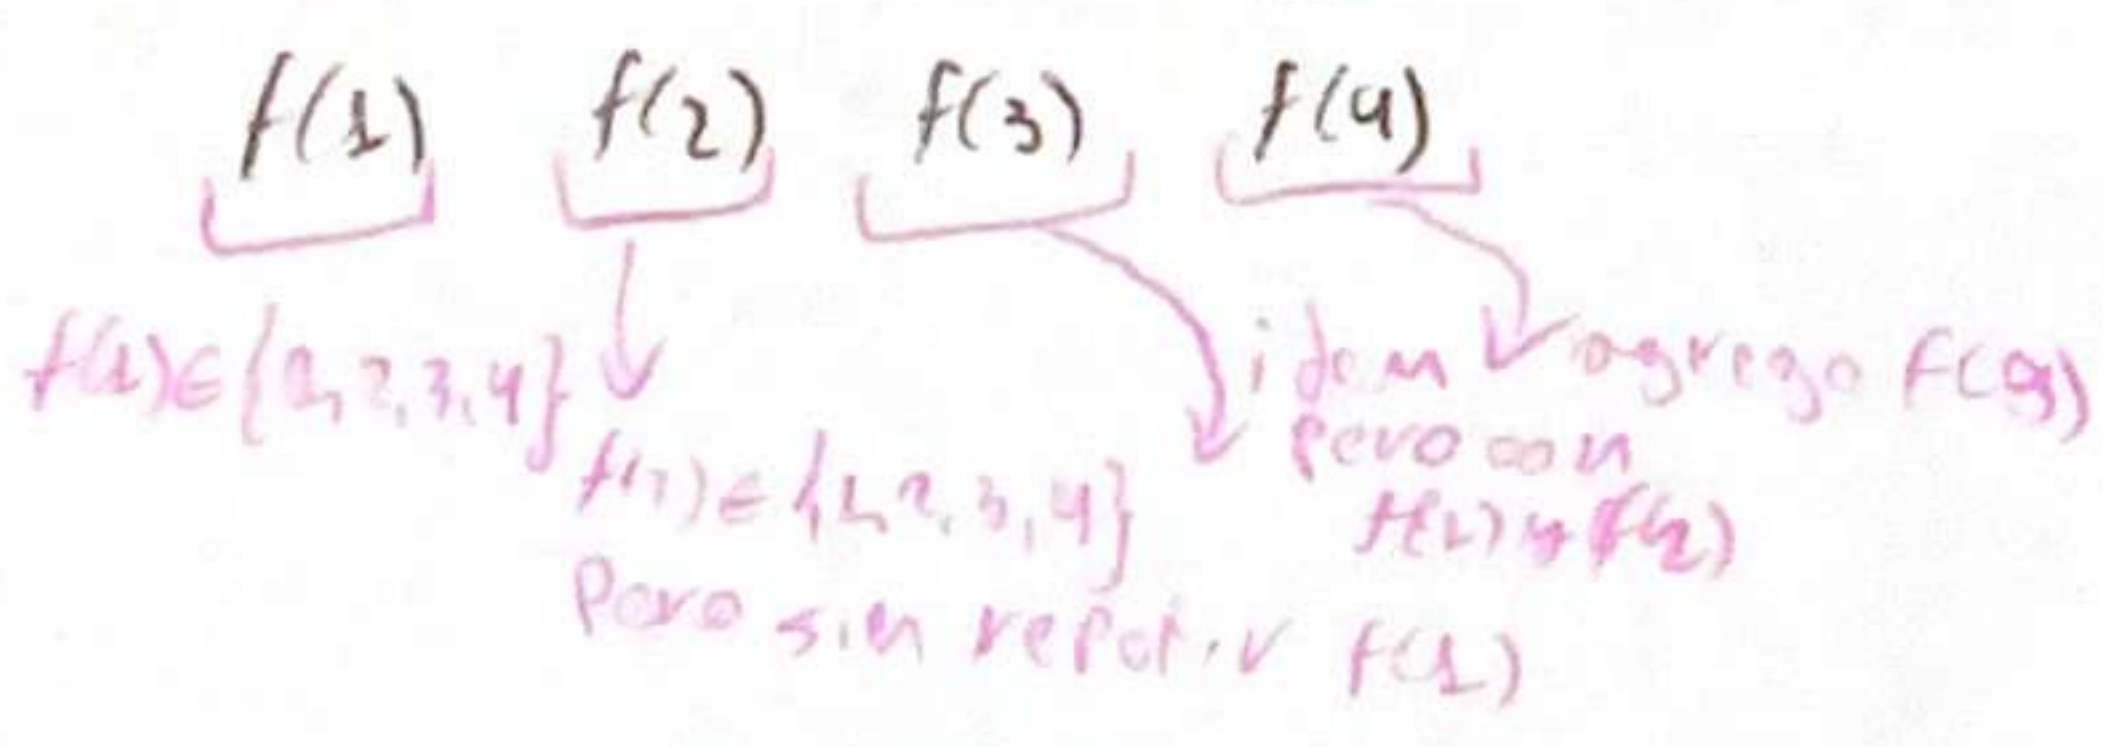 f(1) f(2) f(3) f(4)
f(1)∈{1,2,3,4}
f(2)∈{1,2,3,4}
Pero sin repetir f(1)
idem
pero con
f(1) y f(2)
agrego f(3)